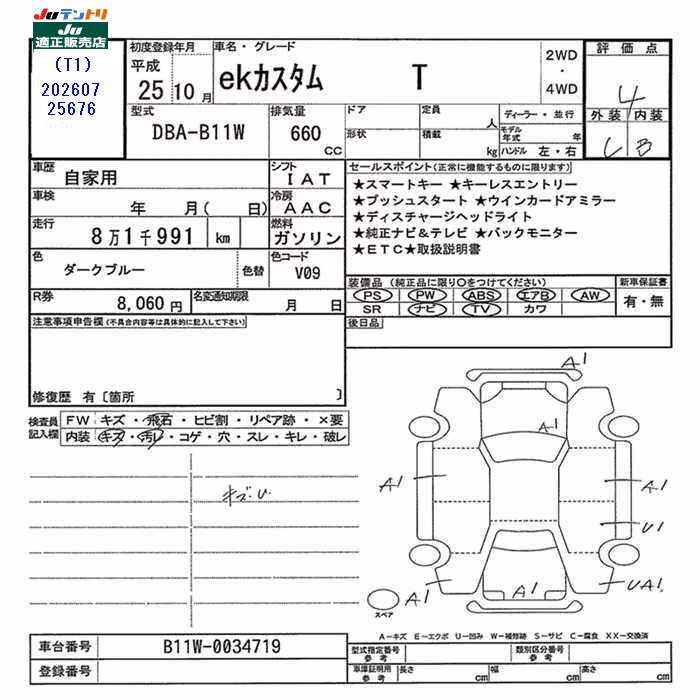 JUテントリ
JU
適正販売店
(T1)
202607
25676
初度登録年月
平成
25 10 月
車名・グレード
ekカスタム T
2WD
・
4WD
評価点
4
外装 内装
C B
型式
DBA-B11W
排気量
660 CC
ドア
形状
定員
人
積載
kg
ディーラー・並行
モデル年式 年
ハンドル 左・右
車歴
自家用
シフト
IAT
車検
年 月( 日)
冷房
AAC
走行
8万1千991 km
燃料
ガソリン
色
ダークブルー
色替
色コード
V09
R券
8,060円
名変通知期限
月 日
セールスポイント(正常に機能するものに限ります)
★スマートキー ★キーレスエントリー
★プッシュスタート ★ウインカードアミラー
★ディスチャージヘッドライト
★純正ナビ&テレビ ★バックモニター
★ETC★取扱説明書
装備品 (純正品に限り○をつけてください)
PS PW ABS エアB AW
SR ナビ TV カワ
新車保証書
有・無
後日品
注意事項申告欄(不具合内容等は具体的に記入して下さい)
修復歴 有〔箇所 〕
検査員記入欄
FW キズ・飛石・ヒビ割・リペア跡・×要
内装 キズ・汚レ・コゲ・穴・スレ・キレ・破レ
キズU
A1
A1
A1
A1
U1
A1
A1
UA1
スペア
A-キズ E-エクボ U-凹み W-補修跡 S-サビ C-腐食 XX-交換済
車台番号
B11W-0034719
登録番号
型式指定番号
参考
類別区分番号
参考
車庫証明用
参考
長さ cm
幅 cm
高さ cm